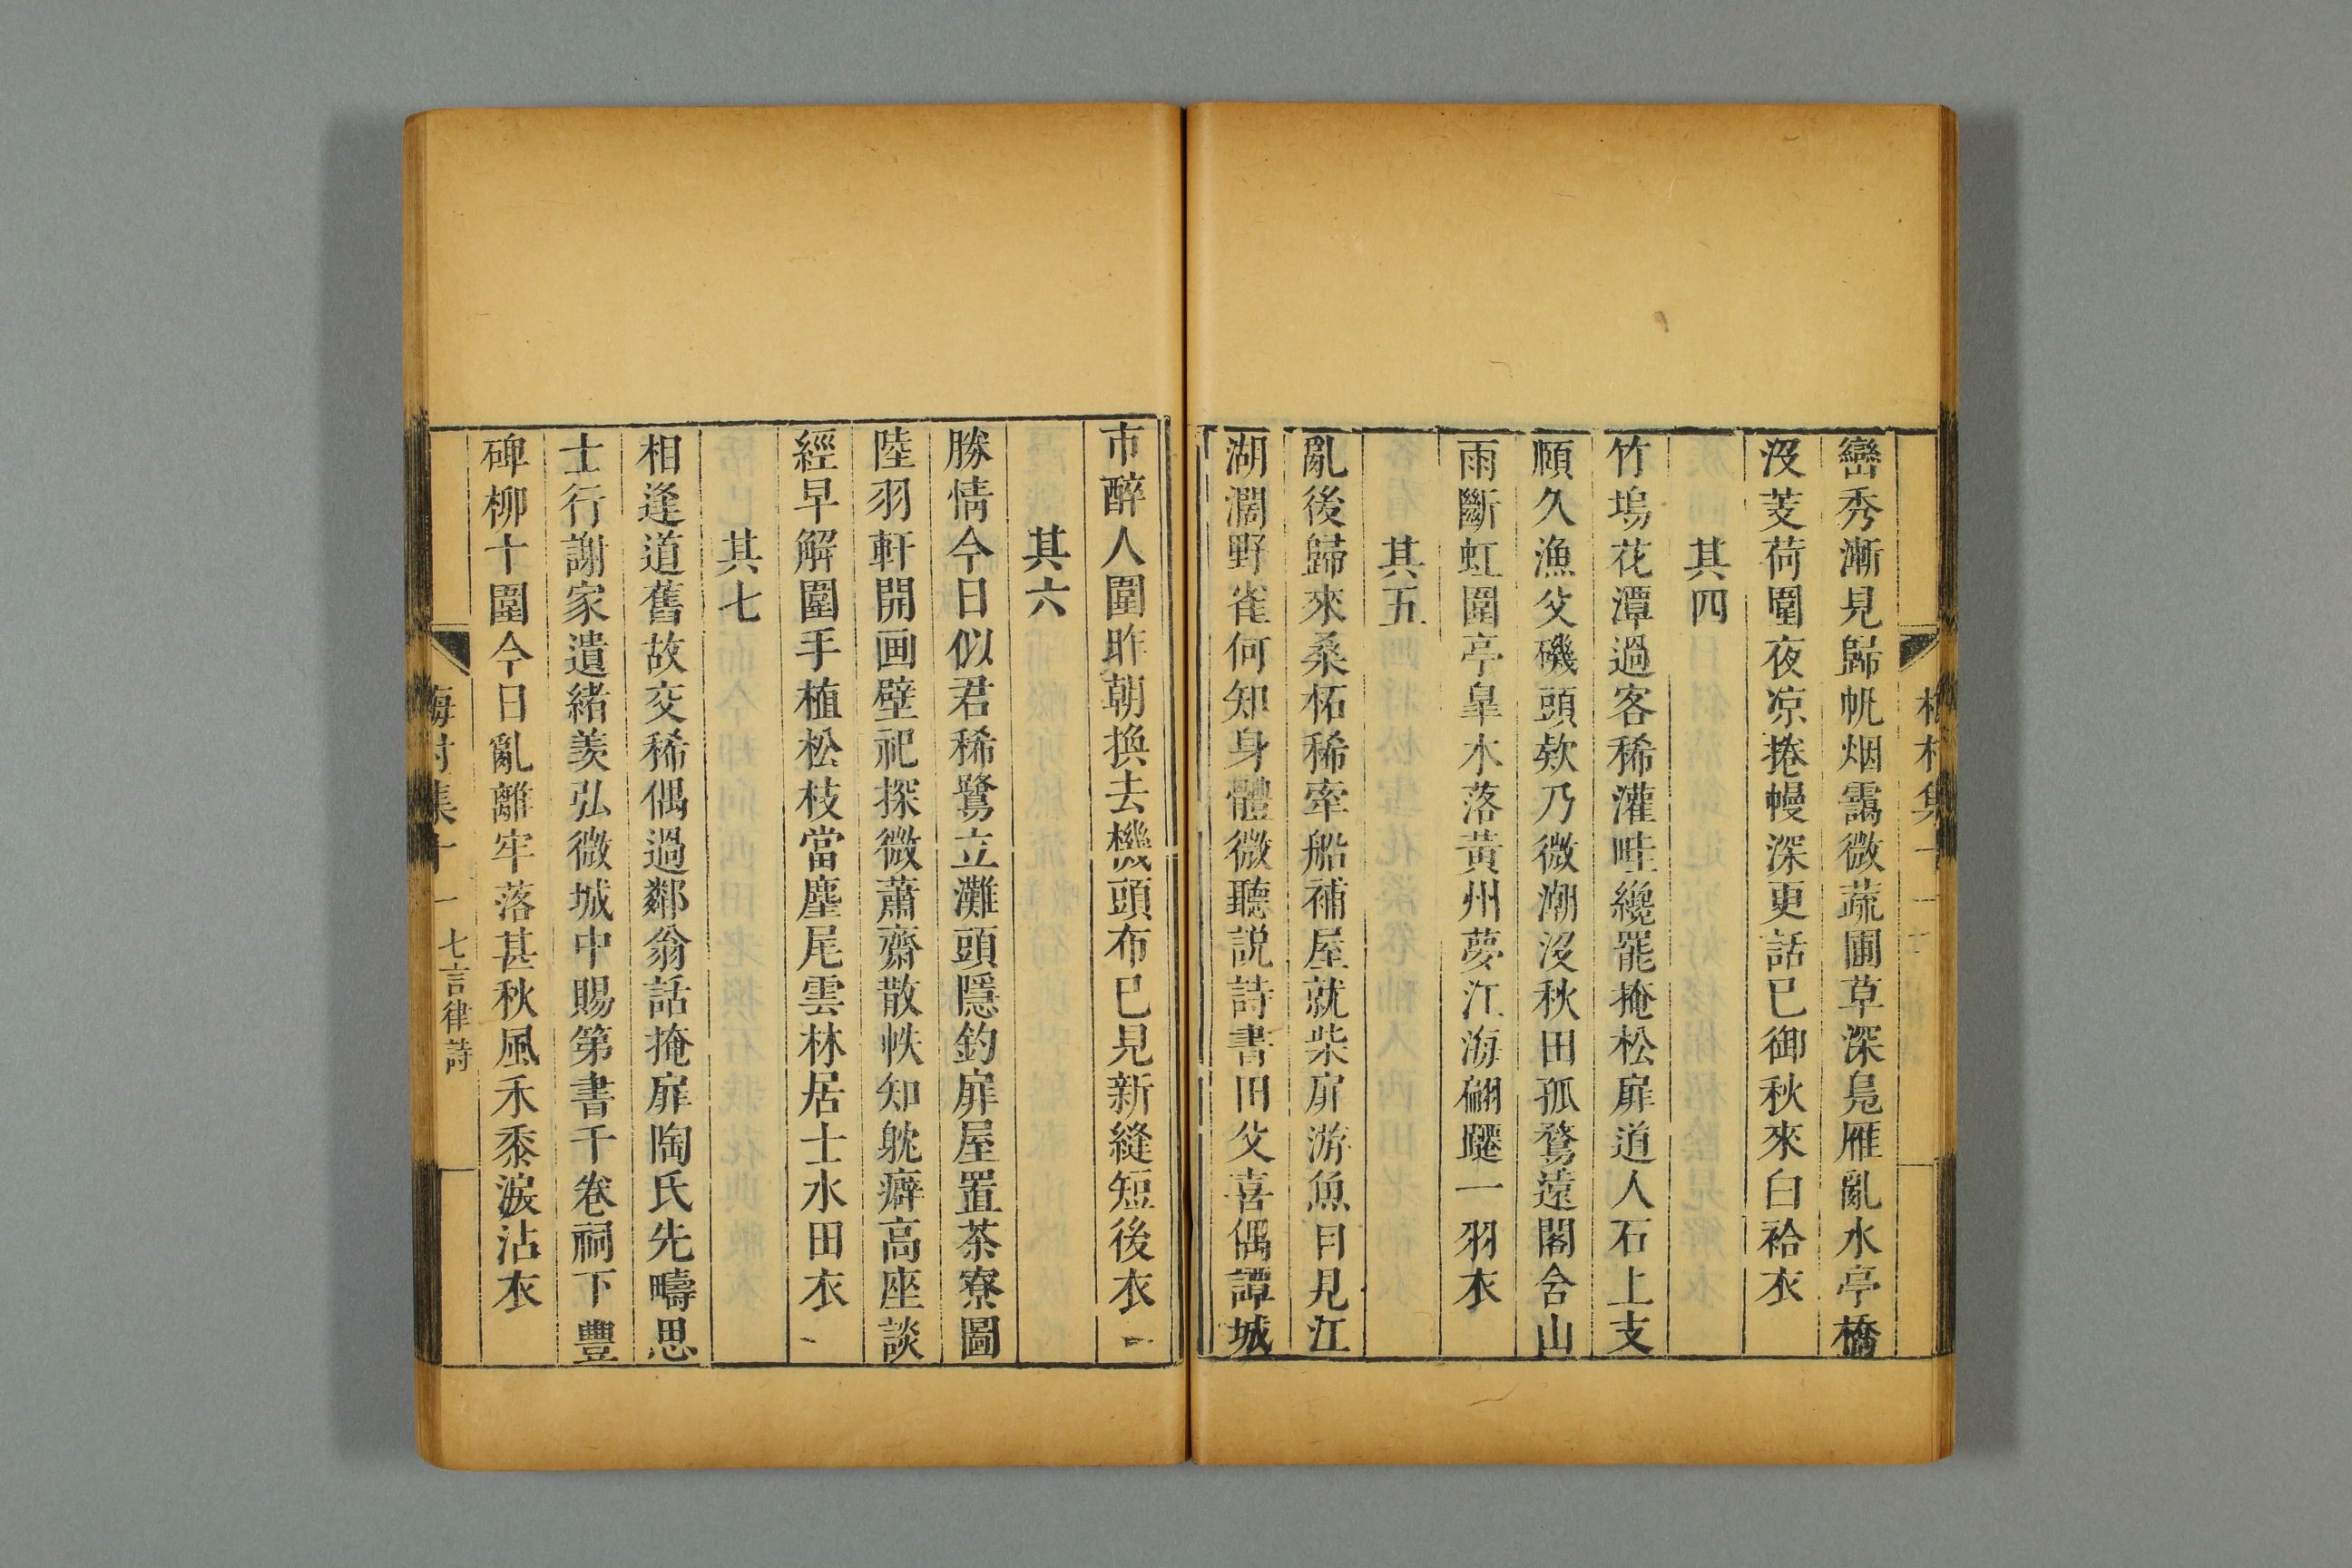 巒秀漸見歸帆烟靄微蔬圃草深鳧雁亂水亭橋
沒芰荷圍夜凉捲幔深更話已御秋來白袷衣
其四
竹塢花潭過客稀灌畦纔罷掩松扉道人石上支
頤久漁父磯頭欸乃微潮沒秋田孤鶩遠閣含山
雨斷虹圍亭臯木落黃州夢江海翩躚一羽衣
其五
亂後歸來桑柘稀牽船補屋就柴扉游魚自見江
湖濶野雀何知身體微聽説詩書田父喜偶譚城
市醉人圍昨朝換去機頭布已見新縫短後衣
其六
勝情今日似君稀鷺立灘頭隱釣扉屋置茶寮圖
陸羽軒開画壁祀探微蕭齋散帙知躭癖高座談
經早解圍手植松枝當麈尾雲林居士水田衣
其七
相逢道舊故交稀偶過鄰翁話掩扉陶氏先疇思
士行謝家遺緒羨弘微城中賜第書千卷祠下豐
碑柳十圍今日亂離牢落甚秋風禾黍淚沾衣
七言律詩